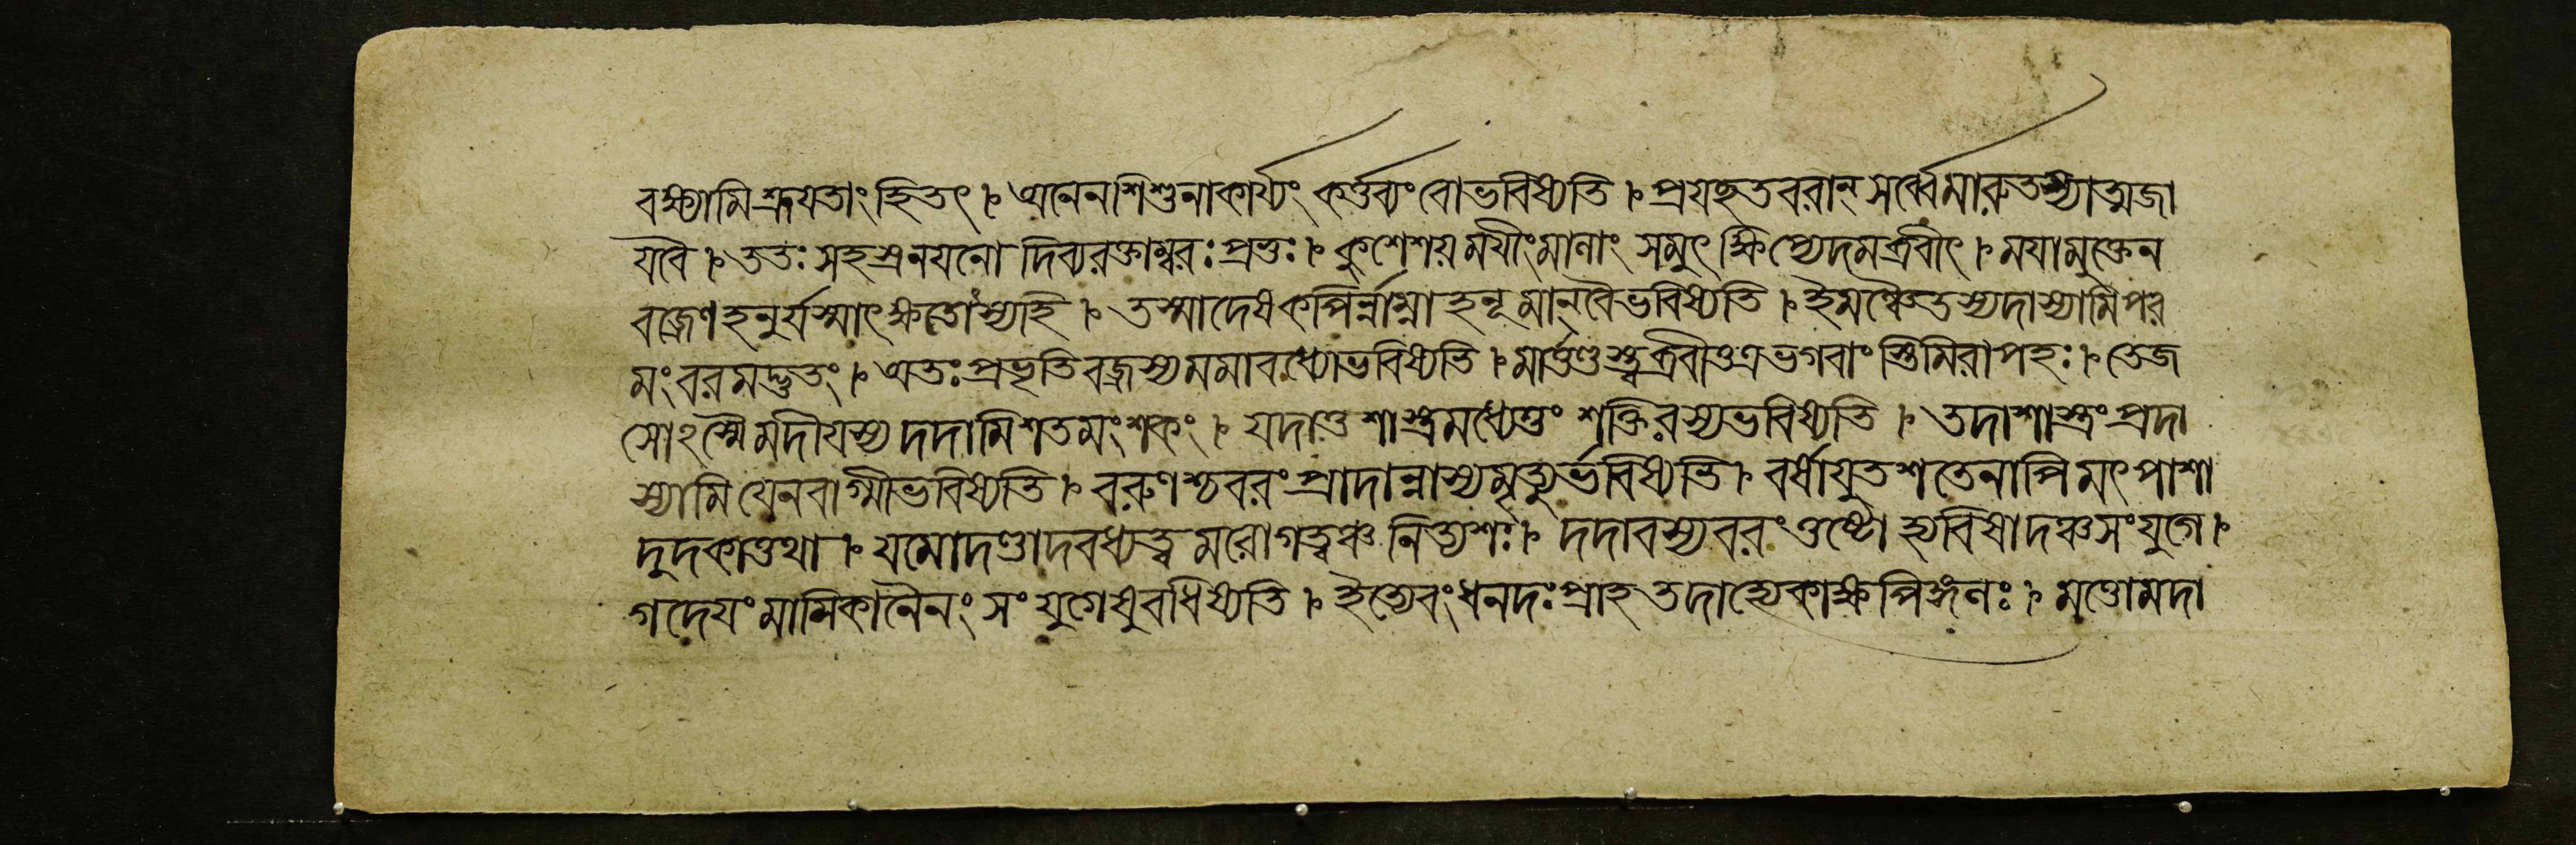 বক্ষ্যামিশ্রূযতাংহিতং । অনেনশিশুনাকার্য্যং কর্ত্তব্যংবোভবিষ্যতি । প্রযছতবরান্ সর্ব্বেমারুতস্যাত্মজা
যবৈ । ততঃসহস্রনযনো দিব্যরক্তাম্বরঃপ্রভুঃ । কুশেশয়মযীংমালাং সমুৎক্ষিপ্যেদমব্রবীৎ । মযামুক্তেন
বজ্রেণহনুর্যস্মাৎক্ষতোস্যহি । তস্মাদেষকপির্ন্নাম্নাহনূমান্‌বৈভবিষ্যতি । ইমঞ্চৈতস্যদাস্যামিপর
মংবরমদ্ভুতং । অতঃপ্রভৃতিবজ্রস্যমমাবধ্যোভবিষ্যতি । মার্ত্তণ্ডস্ত্বব্রবীত্তত্রভগবাংস্তিমিরাপহঃ । তেজ
সোঽস্মৈমদীযস্য দদামিশতমংশকং । যদাতুশাস্ত্রমধ্যেতুং শক্তিরস্যভবিষ্যতি । তদাশাস্ত্রংপ্রদা
স্যামিযেনবাগ্মীভবিষ্যতি । বরুণশ্চবরংপ্রাদান্নাস্যমৃত্যুর্ভবিষ্যতি । বর্ষাযুতশতেনাপিমৎপাশা
দুদকাত্তথা । যমোদণ্ডাদবধ্যত্ব মরোগত্বঞ্চনিত্যশঃ । দদাবস্যবরংতুষ্টোহ্যবিষাদঞ্চসংযুগে ।
গদেযংমামিকানৈনং সংযুগেষুবধিষ্যতি । ইত্যেবংধনদঃপ্রাহতদাহ্যেকাক্ষপিঙ্গলঃ । মত্তোমদা